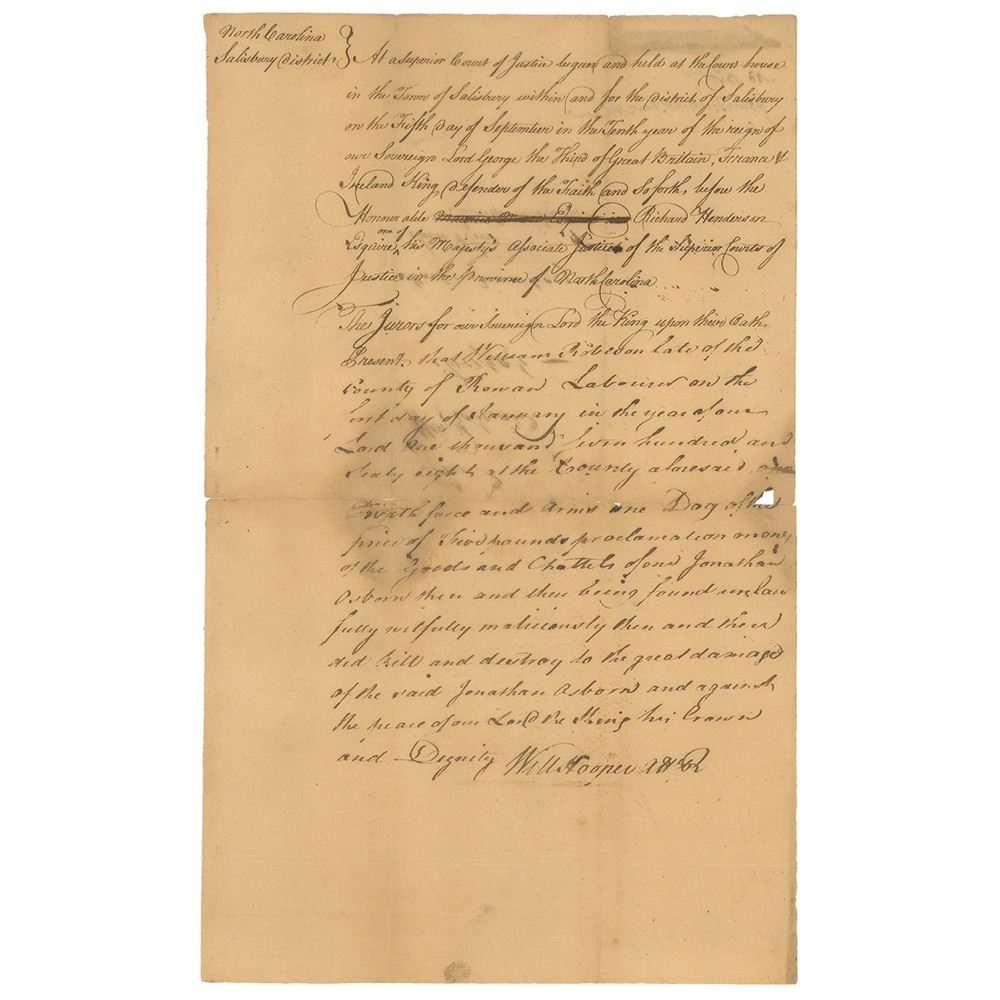 North Carolina
Salisbury District
At a Superior Court of Justice begun and held at the Court house
in the Town of Salisbury within and for the District of Salisbury
on the Fifth Day of September in the Tenth year of the reign of
our Sovereign Lord George the Third of Great Brittain, France &
Ireland King, defender of the Faith and So forth, before the
Honourable Richard Henderson
one of
Esquire, his Majesty's Associate Justices of the Superior Courts of
Justice in the Province of North Carolina
The Jurors for our Sovereign Lord the King upon their Oath
Present, that William Robeson late of the
County of Rowan Labourer on the
first day of January in the year of our
Lord one thousand seven hundred and
sixty eight at the County aforesaid
with force and arms one Dog of the
price of Five pounds proclamation money
of the Goods and Chattels of one Jonathan
Osborn then and there being found unlaw
fully wilfully maliciously then and there
did kill and destroy to the great damage
of the said Jonathan Osborn and against
the peace of our Lord the King his Crown
and Dignity Will Hooper